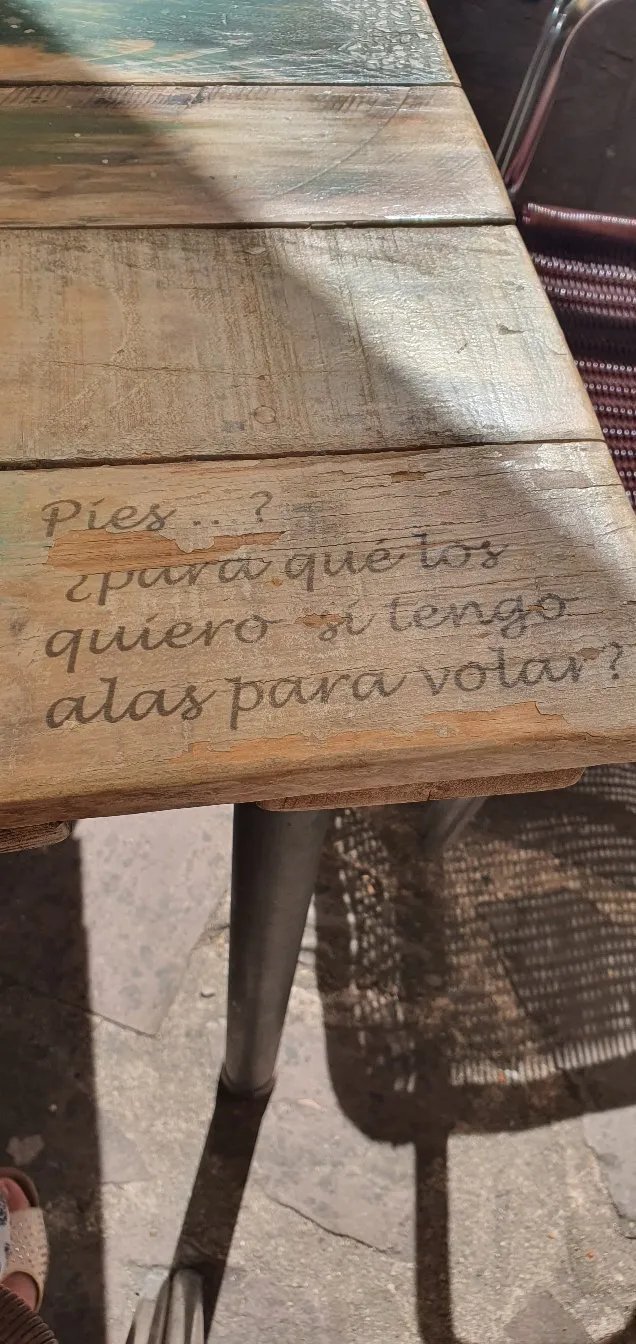 Pies ... ?
¿para qué los
quiero si tengo
alas para volar?